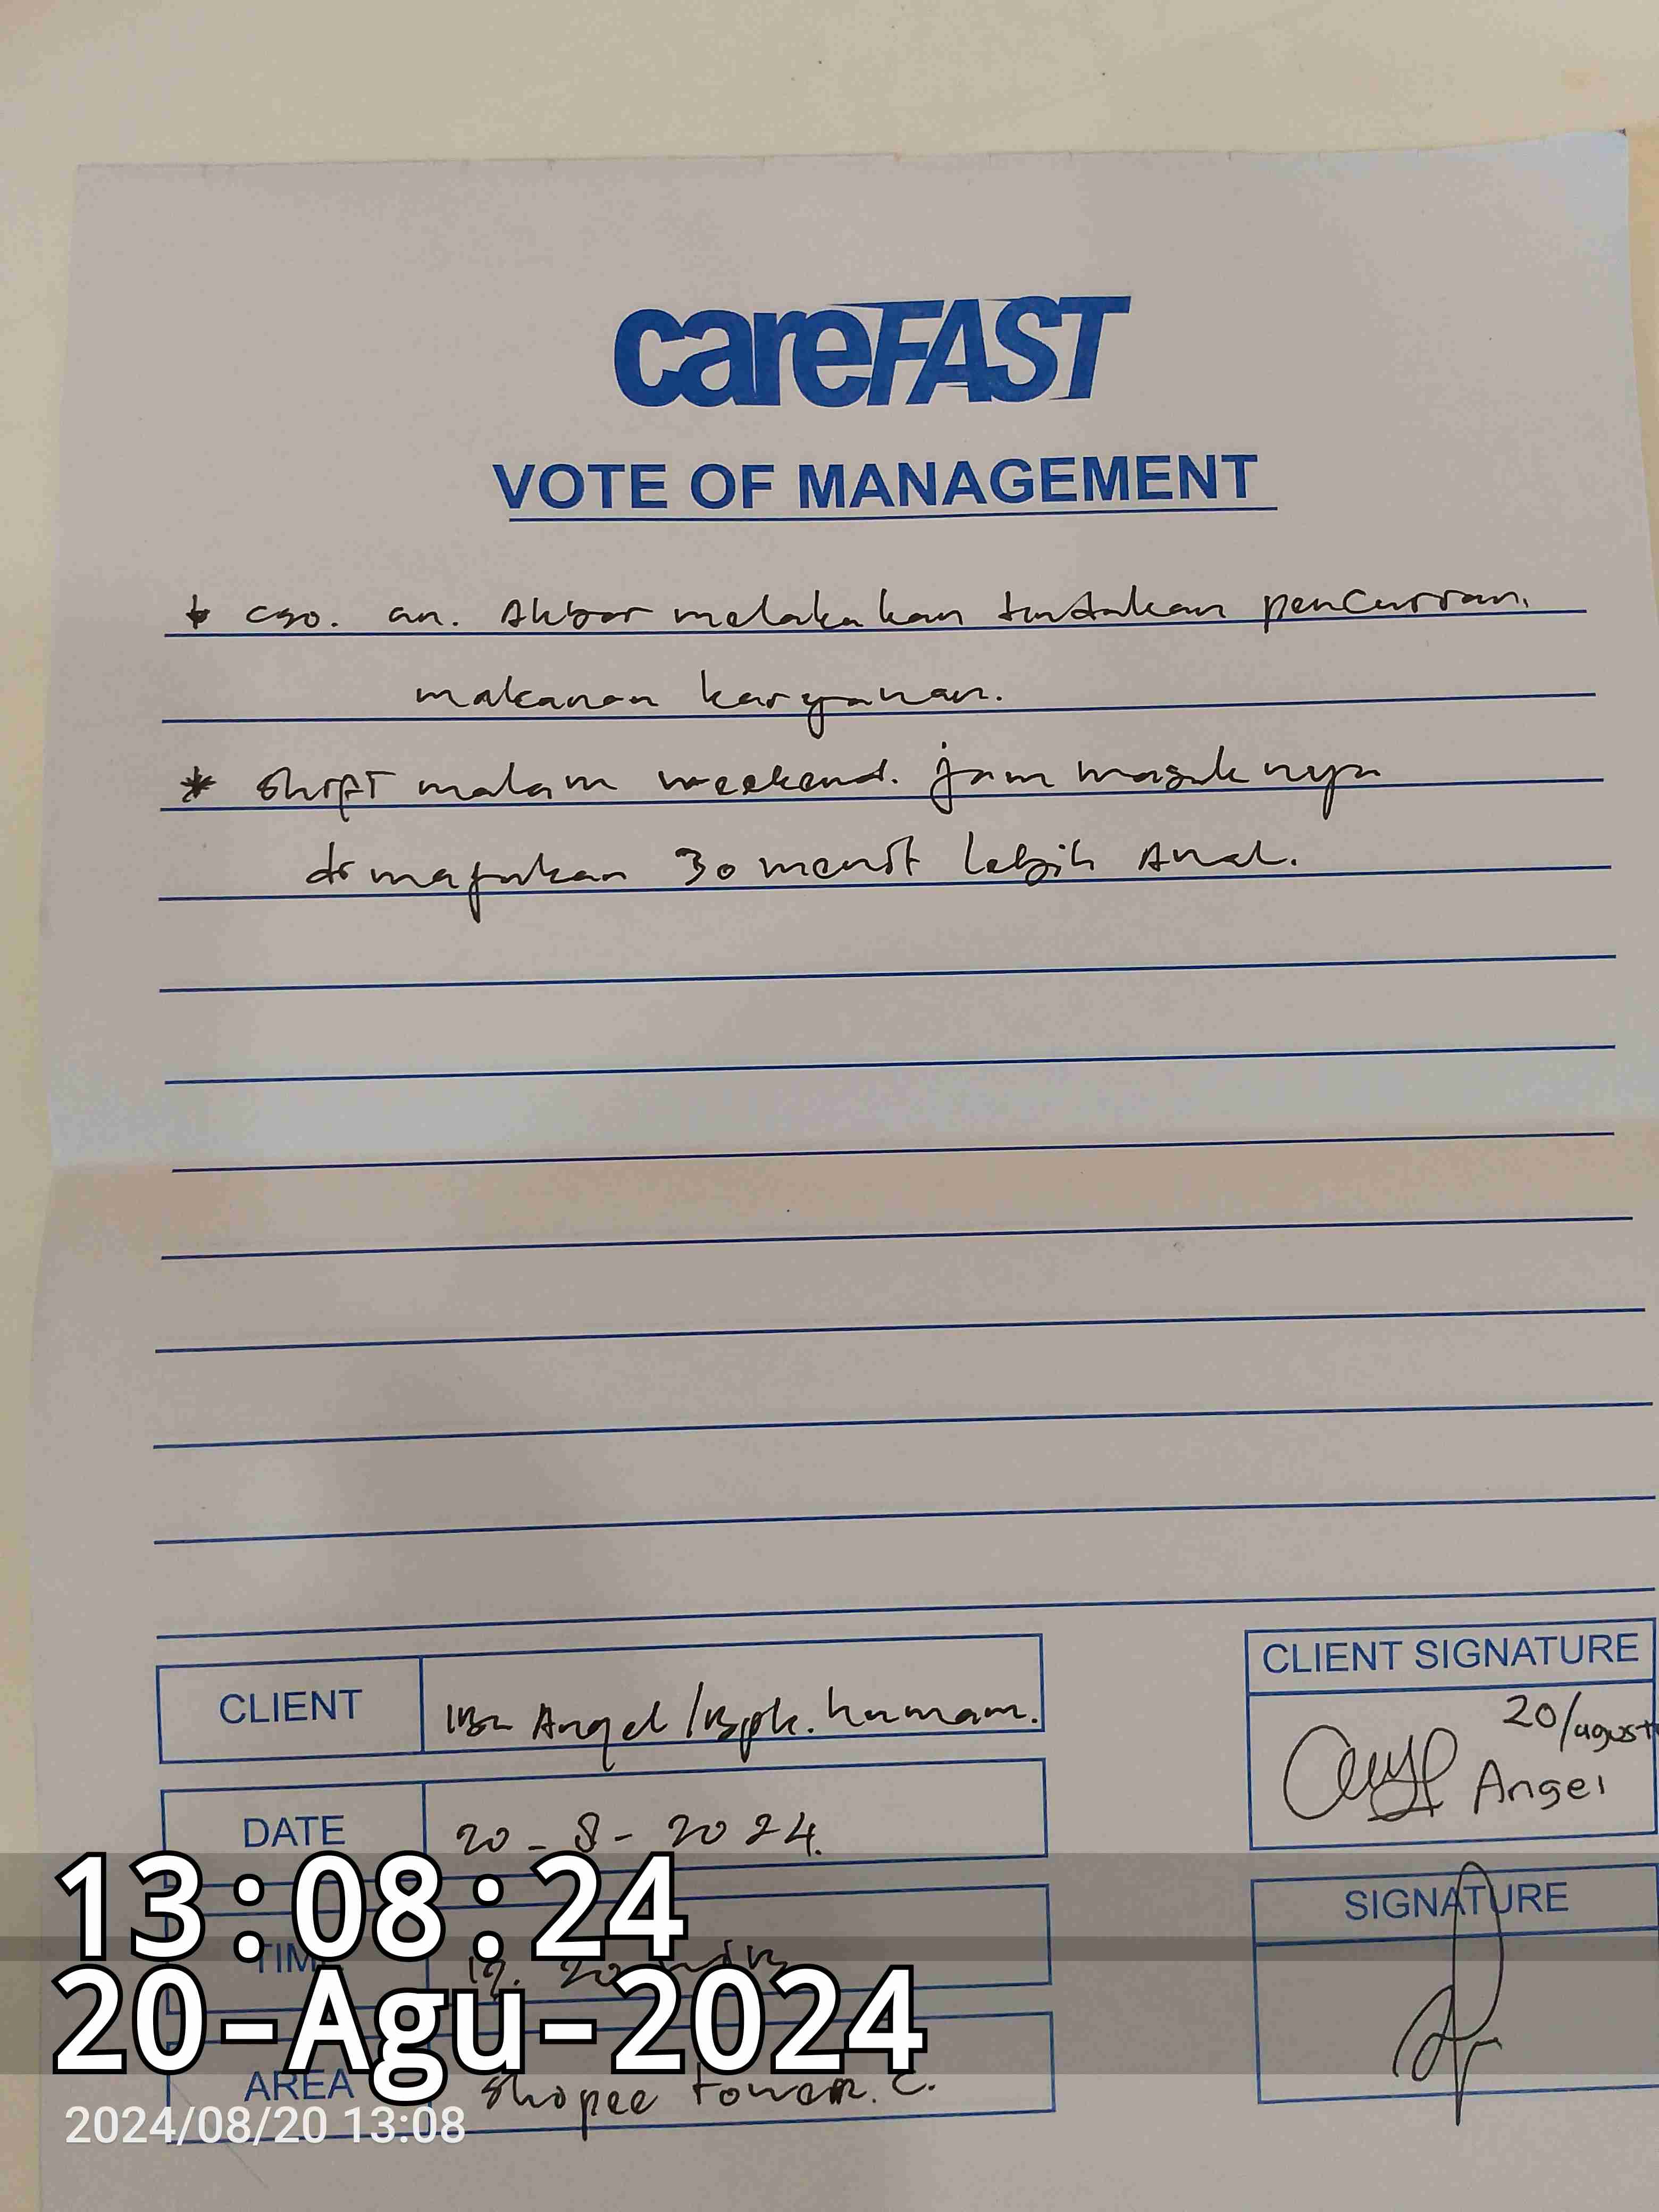 careFAST
VOTE OF MANAGEMENT
* cso. an. Akbar melakukan tindakan pencurian.
makanan karyawan.
* Shift malam weekend. jam masuknya
dimajukan 30 menit lebih Awal.
CLIENT
Ibu Angel / Bpk. humam.
CLIENT SIGNATURE
20/agust
Angel
DATE
20-8-2024.
13:08:24
TIM
SIGNATURE
20-Agu-2024
AREA
Shopee tower. C.
2024/08/20 13:08